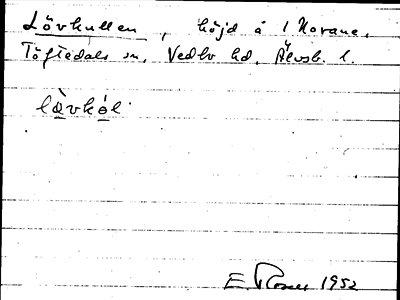 Lövkullen, höjd å 1 Norane,
Töftedals sn, Vedbo hd, Älvsb. l.
lævkól
E. Rosell 1952